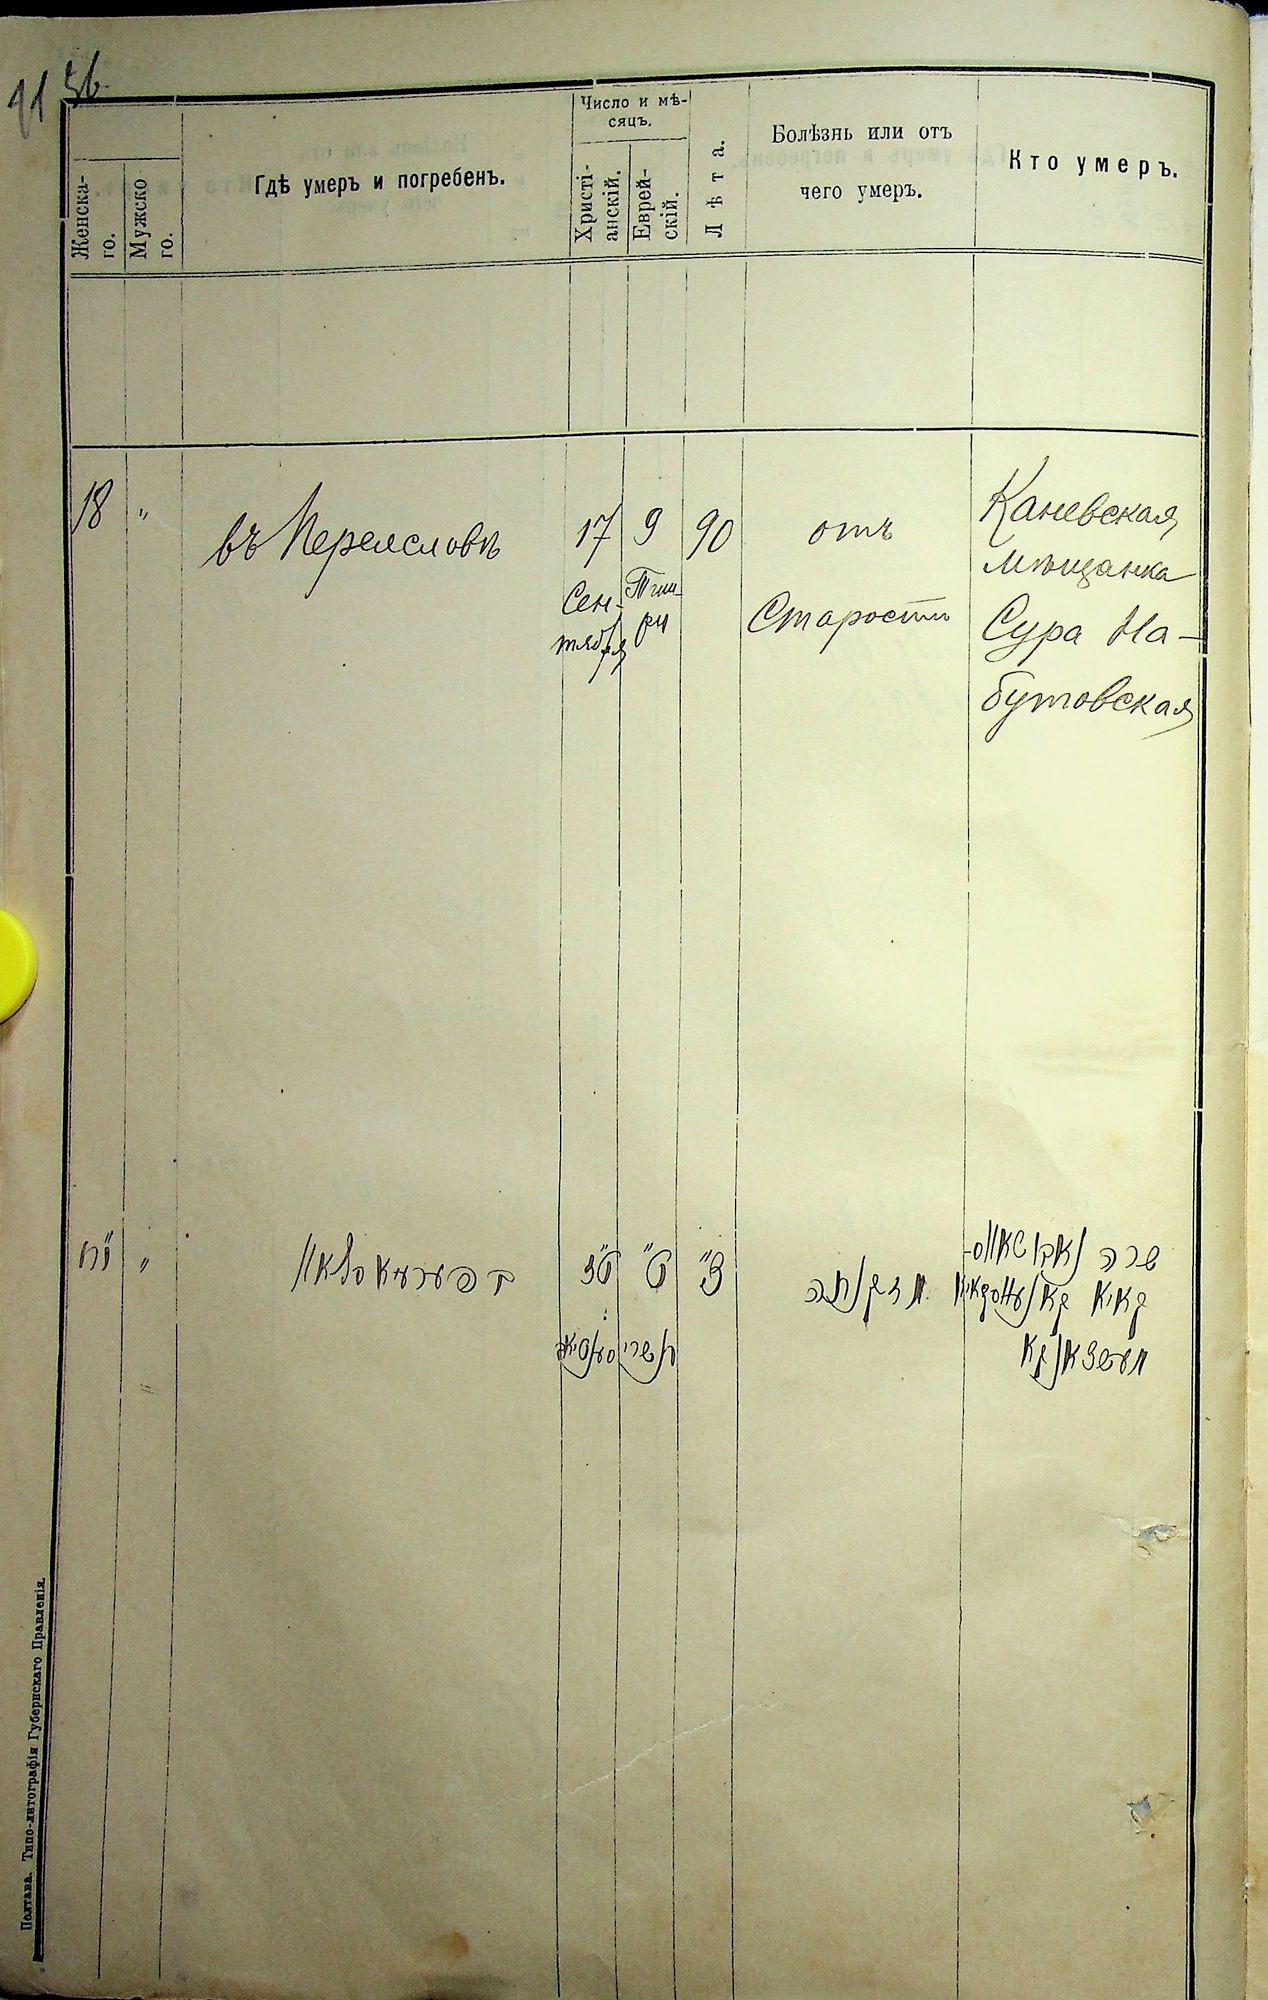 91 56.
Женска-
го.
Мужско
го.
Гдѣ умеръ и погребенъ.
Число и мѣ-
сяцъ.
Христі-
анскій.
Еврей-
скій.
Лѣта.
Болѣзнь или отъ
чего умеръ.
Кто умеръ.
18
"
въ Переяславѣ
17
Сен-
тября
9
Тиш-
ри
90
отъ
Старости
Каневская
мѣщанка
Сура На-
бутовская
י"ח
"
ט"
תשרי
צ"
מזקנה
שרה
"
Полтава. Типо-литографія Губернскаго Правленія.